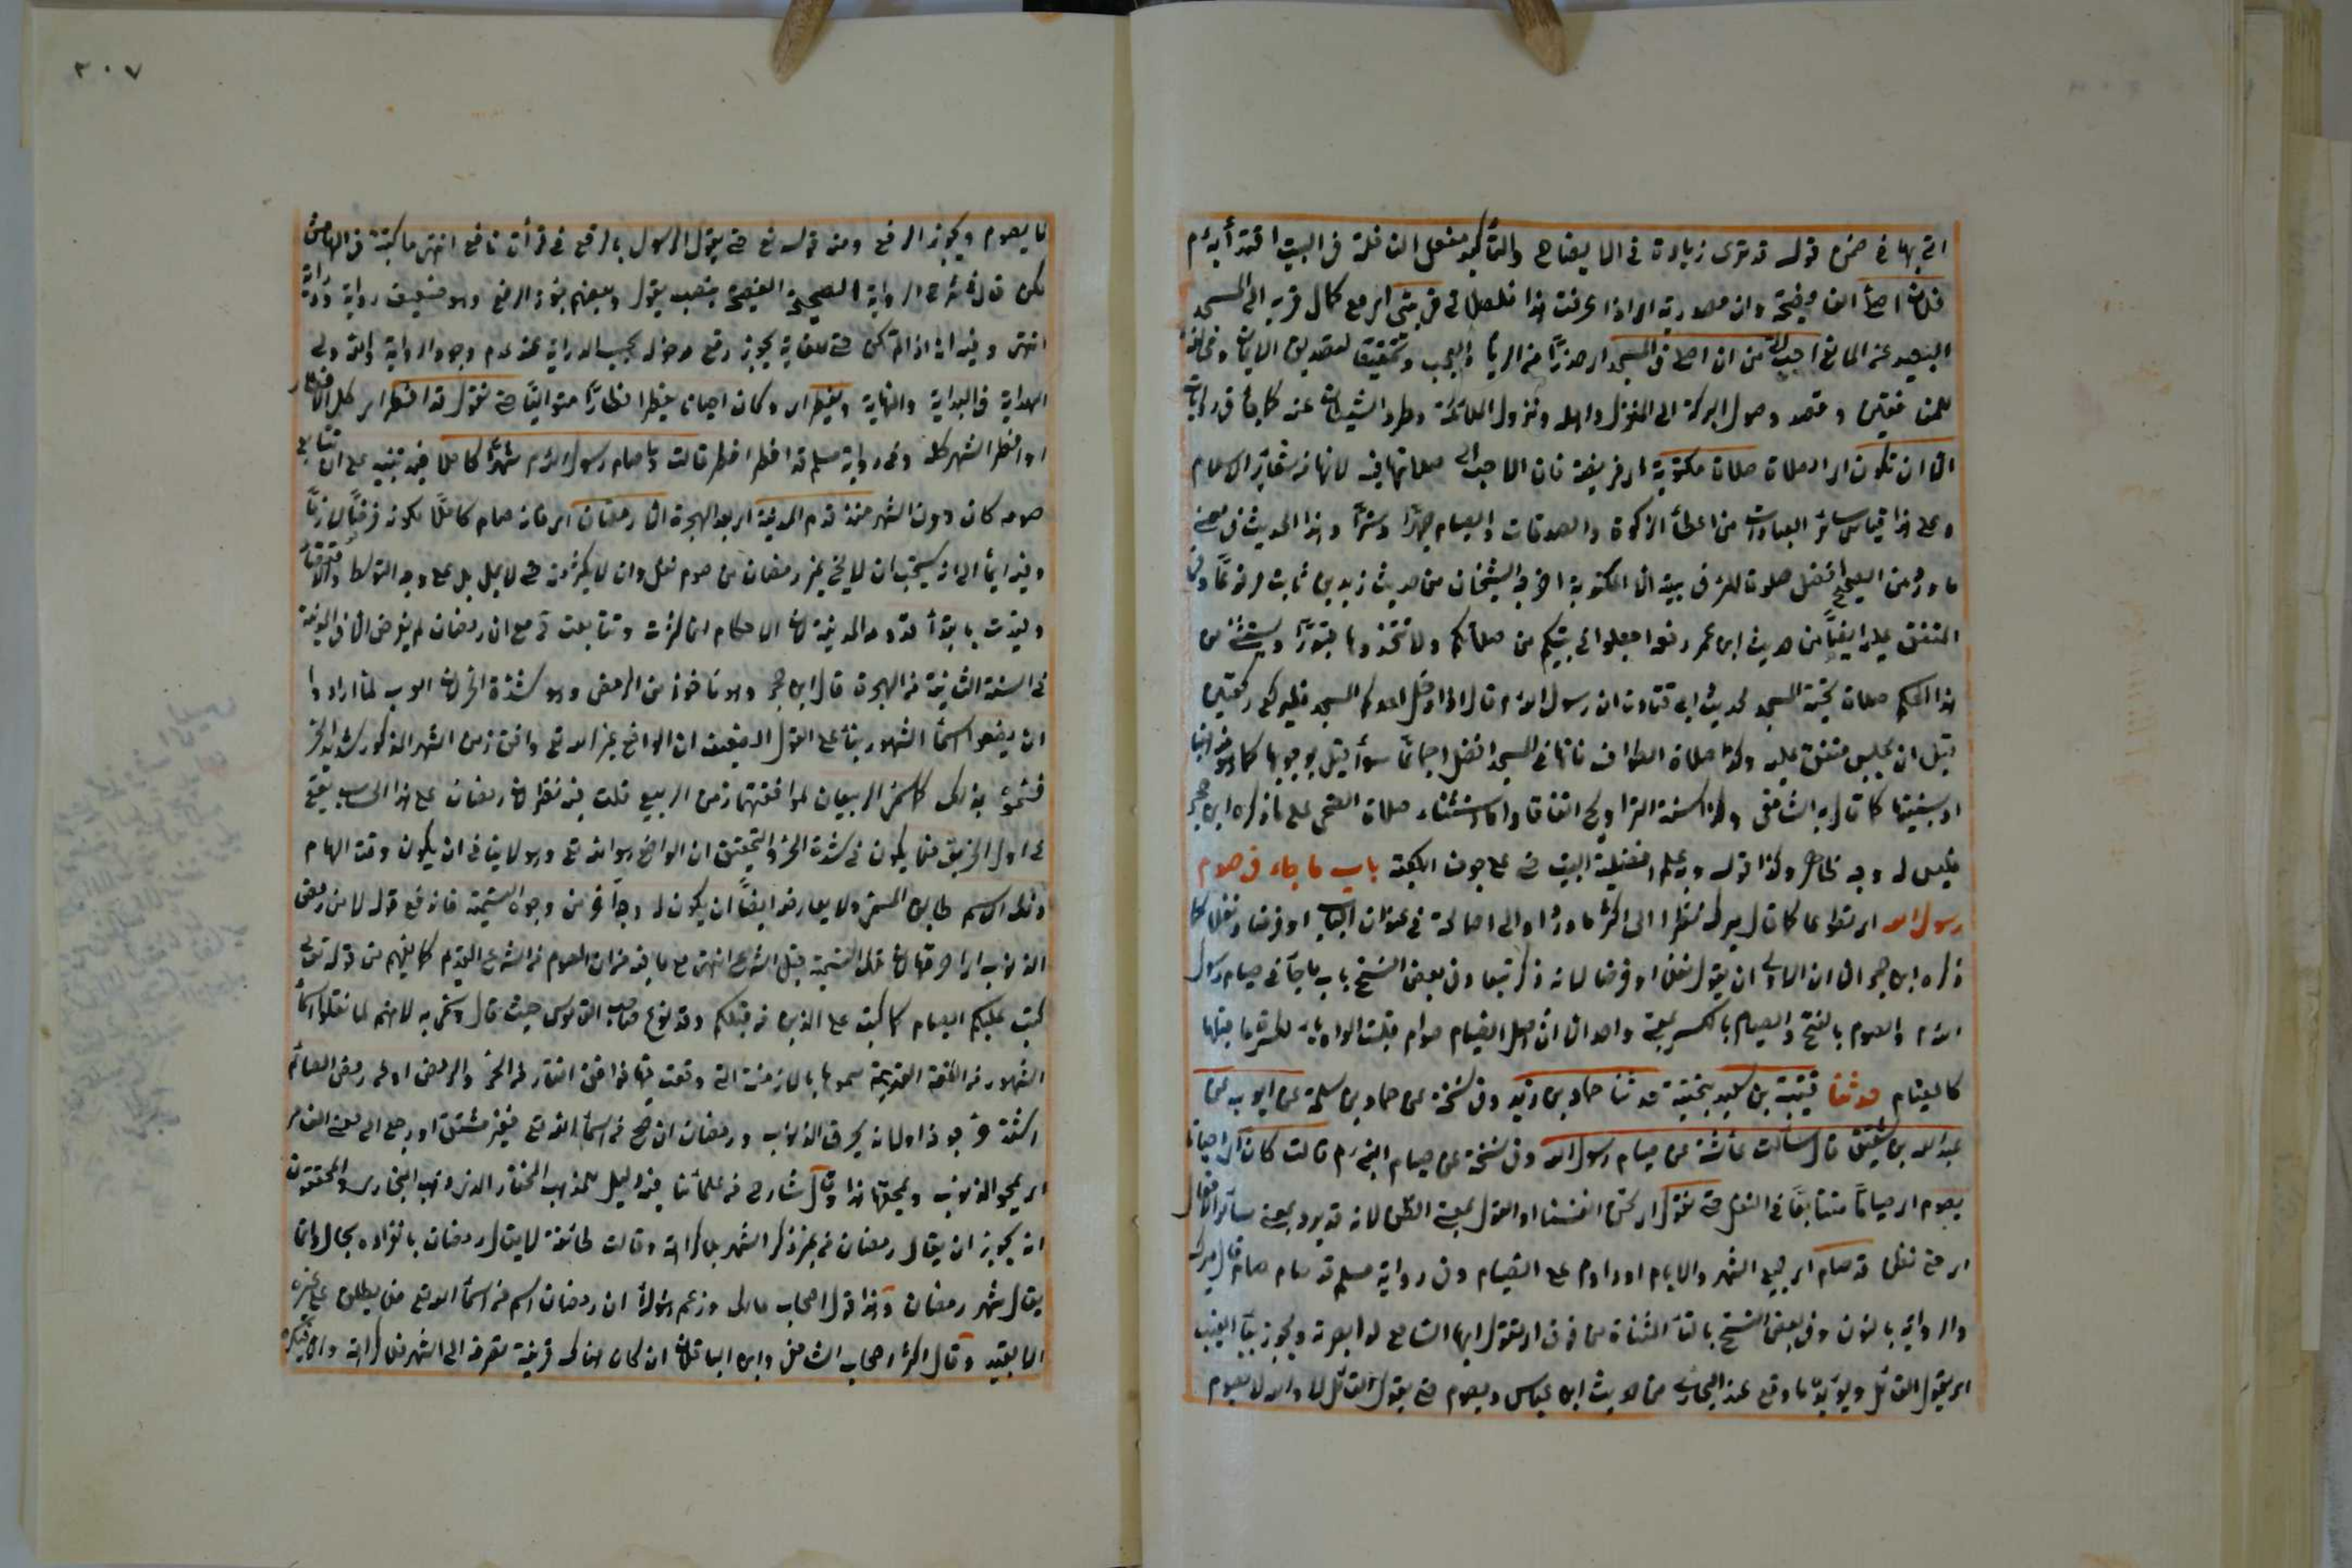 اتى بها في ضمن قوله قد ترى زيادة في الايضاح والتأكيد مفعل النافلة في البيت اقتداء به
فلان اصلي الفاء فصيحة وان مصدرية اي اذا عرفت هذا فلصلاتي في بيتي اي مع كمال قربه الى المسجد
البعيد عن المانع احب الي من ان اصلي في المسجد اي حذرا من الرياء والعجب وتحقيقا لتصديق الايمان ومخالفة
للمنافقين وقصد وصول البركة الى المنزل واهله ونزول الملائكة وطرد الشيطان عنه كما جاء في روايات
الا ان تكون اي الصلاة صلاة مكتوبة اي فريضة فان الاحب الي صلاتها فيه لانها من شعائر الاسلام
وعلى هذا قياس سائر العبادات من اعطاء الزكوة والصدقات والصيام جهرا وسرا وهذا الحديث في معنى
ما ورد من الصحيح افضل صلوة المرء في بيته الا المكتوبة اخرجه الشيخان من حديث زيد بن ثابت مرفوعا وفي
المتفق عليه ايضا من حديث ابن عمر رفعه اجعلوا في بيوتكم من صلاتكم ولا تتخذوها قبورا ويستثنى من
هذا الحكم صلاة تحية المسجد لحديث ابي قتادة ان رسول الله م قال اذا دخل احدكم المسجد فليركع ركعتين
قبل ان يجلس متفق عليه وكذا صلاة الطواف فانها في المسجد افضل اجماعا سواء قيل بوجوبها كما هو مذهبنا
او سنيتها كما قال به الشافعي وكذا سنة التراويح اتفاقا واما استثناء صلاة الضحى على ما ذكره ابن حجر
فليس له وجه ظاهر وكذا قوله وبه علم افضلية البيت حتى على جوف الكعبة باب ما جاء في صوم
رسول الله اي تطوعا كما قال ميرك نظرا الى اكثر ما ورد او الى اصالة في عنوان الباب او فرضا ونفلا كما
ذكره ابن حجر الا ان الاولى ان يقول نفلا او فرضا لانه ذكر تبعا وفي بعض النسخ باب ما جاء في صيام رسول
الله م والصوم بالفتح والصيام بالكسر بمعنى واحد الا ان اصل الصيام صوام قلبت الواو ياء لكسر ما قبلها
كالقيام حدثنا قتيبة بن سعيد حدثنا حماد بن زيد وفي نسخة عن حماد بن سلمة عن ايوب عن
عبد الله بن شقيق قال سألت عائشة عن صيام رسول الله وفي نسخة عن صيام النبي م قالت كان اي احيانا
يصوم اي صياما متتابعا في النفل حتى نقول اي نحن في انفسنا او القول بمعنى الظن لانه قد يرد بمعنى سائر الافعال
اي حتى نظن قد صام اي جميع الشهر والايام او داوم على الصيام وفي رواية مسلم قد صام صام قال ميرك
والرواية بالنون وفي بعض النسخ بالتاء المثناة من فوق اي تقول ايها السامع لو ابصرته ويجوز بياء الغيبة
اي يقول القائل ويؤيده ما وقع عند البخاري من حديث ابن عباس ويصوم حتى يقول القائل لا والله لا يصوم
لا يصوم ويجوز الرفع ومنه قوله تع حتى يقول الرسول بالرفع في قرأة نافع انتهى ما كتبه في الهامش
لكن قال شارح الرواية الصحيحة الفصيحة بنصب يقول وبعضهم جوز الرفع وهو ضعيف رواية ودراية
انتهى وفيه انه اذا لم تكن حتى للغاية يجوز رفع مدخولها بحسب الدراية عند عدم وجود الرواية والله ولي
الهداية في البداية والنهاية ويفطر اي وكان احيانا يفطر افطارا متواليا حتى نقول قد افطر اي كل الافطار
او افطر الشهر كله وفي رواية مسلم قد افطر افطر قالت وما صام رسول الله م شهرا كاملا فيه تنبيه على ان تتابع
صومه كان دون الشهر منذ قدم المدينة اي بعد الهجرة الا رمضان اي فانه صام كاملا لكونه فرضا لازما
وفيه ايماء الى انه يستحب ان لا يخلي غير رمضان من صوم نفل وان لا يكثر منه حتى لا يمل بل على وجه التوسط والاقتصاد
وقيدت بابتداء قدومه المدينة لان الاحكام انما كثرت وتتابعت ثم مع ان رمضان لم يفرض الا في المدينة
في السنة الثانية من الهجرة قال ابن حجر وهو مأخوذ من الرمض وهو شدة الحر لان العرب لما ارادوا
ان يضعوا اسماء الشهور بناء على القول الضعيف ان الواضع غير الله تع وافق زمن الشهر المذكور شدة الحر
فسموه بذلك كما سمى الربيعان لموافقتهما زمن الربيع قلت فيه نظر لان رمضان على هذا الحساب يقع
في اول الخريف فلا يكون في شدة الحر والتحقيق ان الواضع هو الله تع وهو لا ينافي ان يكون وقت الهام
ذلك الاسم طابق المسمى ولا يعارضه ايضا ان يكون له وجه آخر من وجوه التسمية فاندفع قوله لا من رمض
الذنوب اي احرقها لان تلك التسمية قبل الشرع انتهى مع ما فيه من ان الصوم من الشرع القديم كما يفهم من قوله تعالى
كتب عليكم الصيام كما كتب على الذين من قبلكم وقد نوع صاحب القاموس حيث قال وسمي به لانهم لما نقلوا اسماء
الشهور من اللغة القديمة سموها بالازمنة التي وقعت فيها فوافق ناتق زمن الحر والرمض او من رمض الصائم
اشتد حر جوفه او لانه يحرق الذنوب ورمضان ان صح من اسماء الله تع فغير مشتق او راجع الى معنى الغافر
اي يمحو الذنوب ويمحقها هذا وقال شارح من علمائنا فيه دليل للمذهب المختار الذي ذهب البخاري والمحققون
انه يجوز ان يقال رمضان من غير ذكر الشهر بلا كراهة وقالت طائفة لا يقال رمضان بانفراده بحال وانما
يقال شهر رمضان وهذا قول اصحاب مالك وزعم هؤلاء ان رمضان اسم من اسماء الله تع فلا يطلق على غيره
الا بقيد وقال اكثر اصحاب الشافعي وابن الباقلاني ان كان هناك قرينة تصرفه الى الشهر فلا كراهة والا فيكره